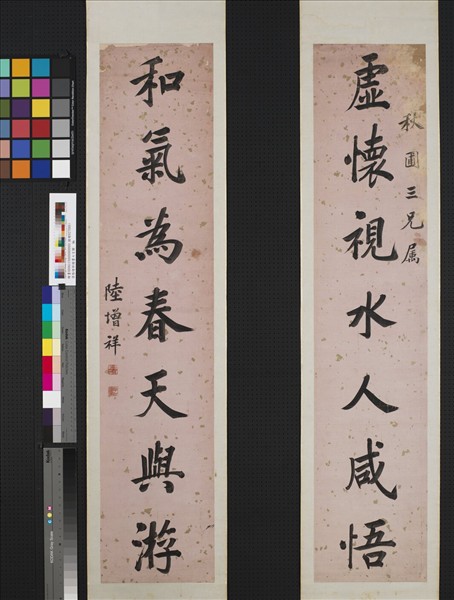 虛懷視水人咸悟
秋圃三兄属
和氣為春天與游
陸增祥